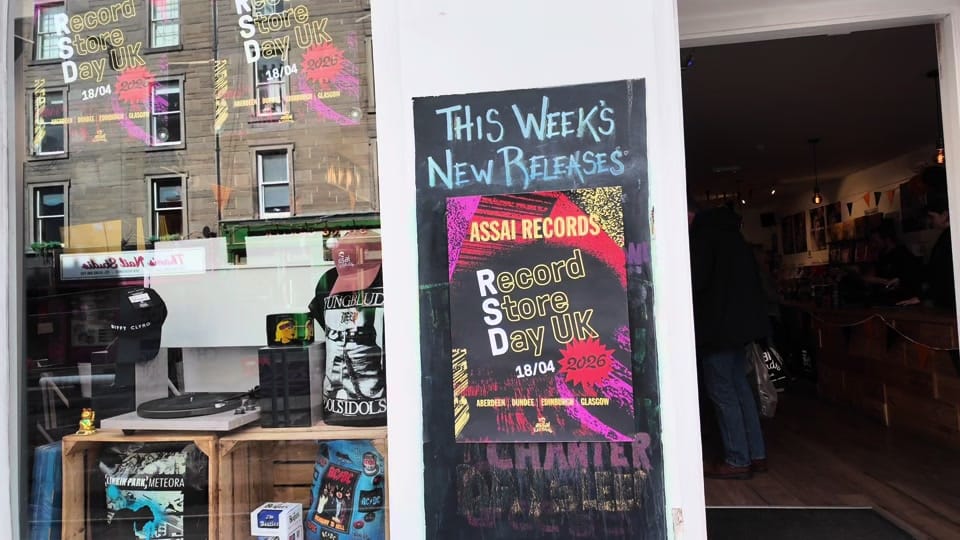 Record
Store
Day UK
18/04
2026
ABERDEEN | DUNDEE | EDINBURGH | GLASGOW
Record
Store
Day UK
18/04
2026
ABERDEEN | DUNDEE | EDINBURGH | GLASGOW
Nail Studio
BIFFY CLYRO
YUNGBLUD
IDOLS IDOLS
LINKIN PARK, METEORA
AC/DC
HIGHWAY TO HELL
The Beatles
THIS WEEK'S
NEW RELEASES
ASSAI RECORDS
Record
Store
Day UK
18/04
2026
ABERDEEN | DUNDEE | EDINBURGH | GLASGOW
CHARTER